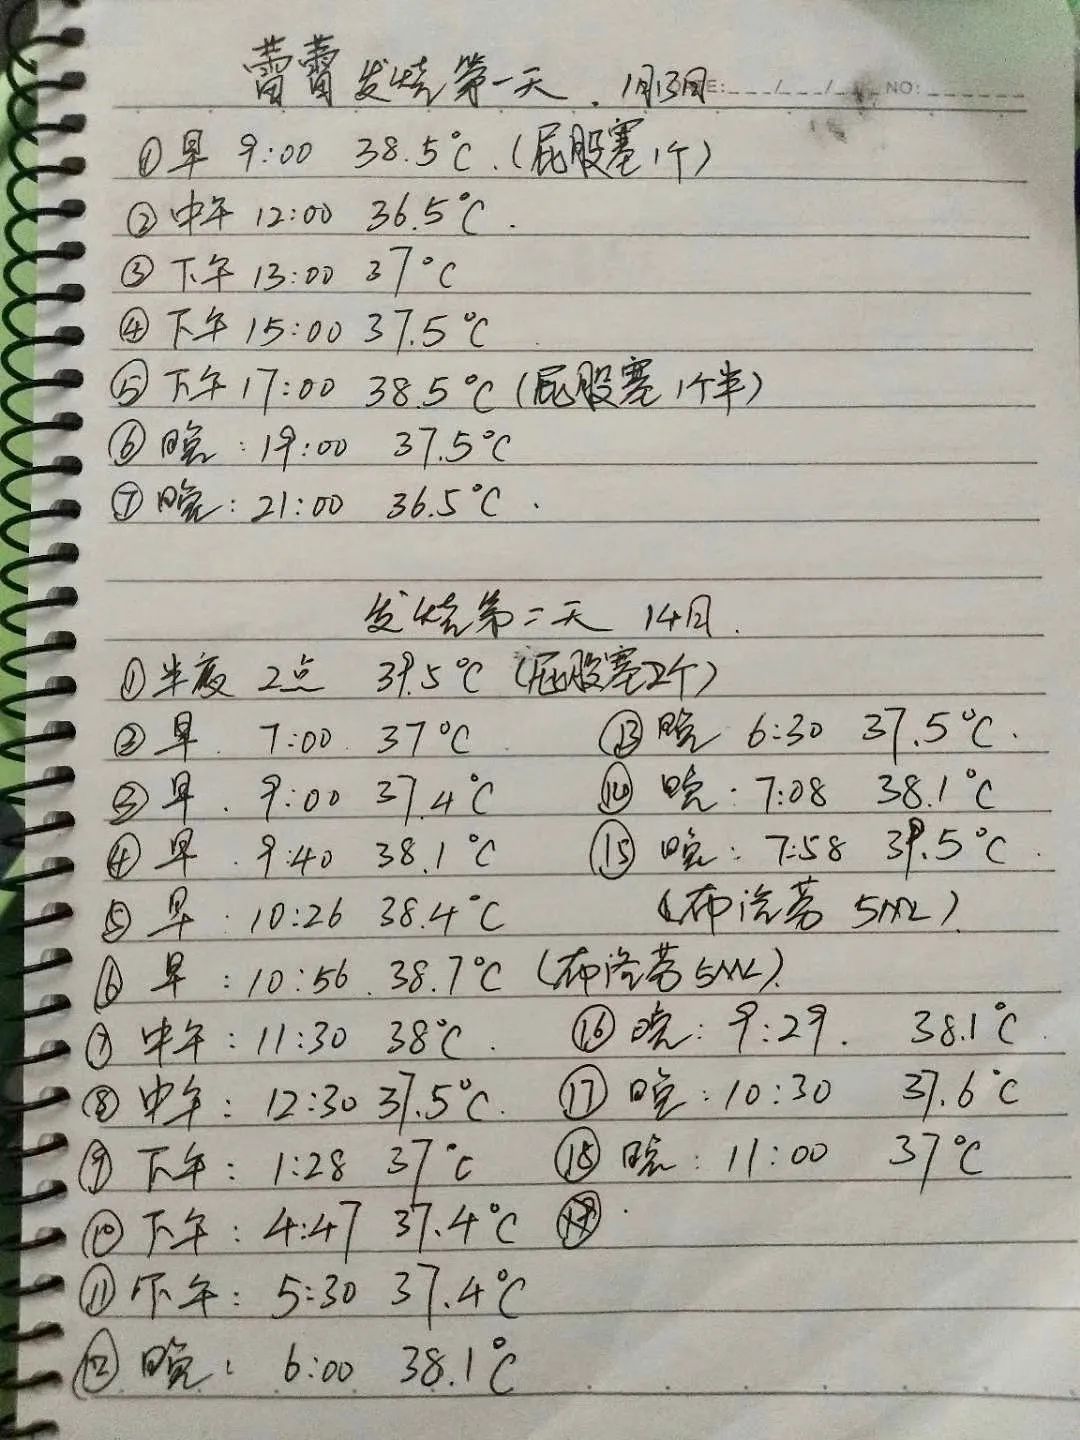 蕾蕾发烧第一天. 1月13日
E: / / NO:
①早 9:00 38.5℃.(屁股塞1个)
②中午 12:00 36.5℃.
③下午 13:00 37℃
④下午 15:00 37.5℃
⑤下午 17:00 38.5℃(屁股塞1个半)
⑥晚: 19:00 37.5℃
⑦晚: 21:00 36.5℃.
发烧第二天 14日.
①半夜 2点 39.5℃(屁股塞2个)
②早. 7:00 37℃
③早. 9:00 37.4℃
④早. 9:40 38.1℃
⑤早: 10:26 38.4℃
⑥早: 10:56 38.7℃(布洛芬5ML).
⑦中午: 11:30 38℃.
⑧中午: 12:30 37.5℃.
⑨下午: 1:28 37℃
⑩下午: 4:47 37.4℃
⑪下午: 5:30 37.4℃
⑫晚: 6:00 38.1℃
⑬晚 6:30 37.5℃.
⑭晚: 7:08 38.1℃
⑮晚: 7:58 39.5℃.
(布洛芬 5ML).
⑯晚: 9:29. 38.1℃.
⑰晚: 10:30 37.6℃
⑱晚: 11:00 37℃